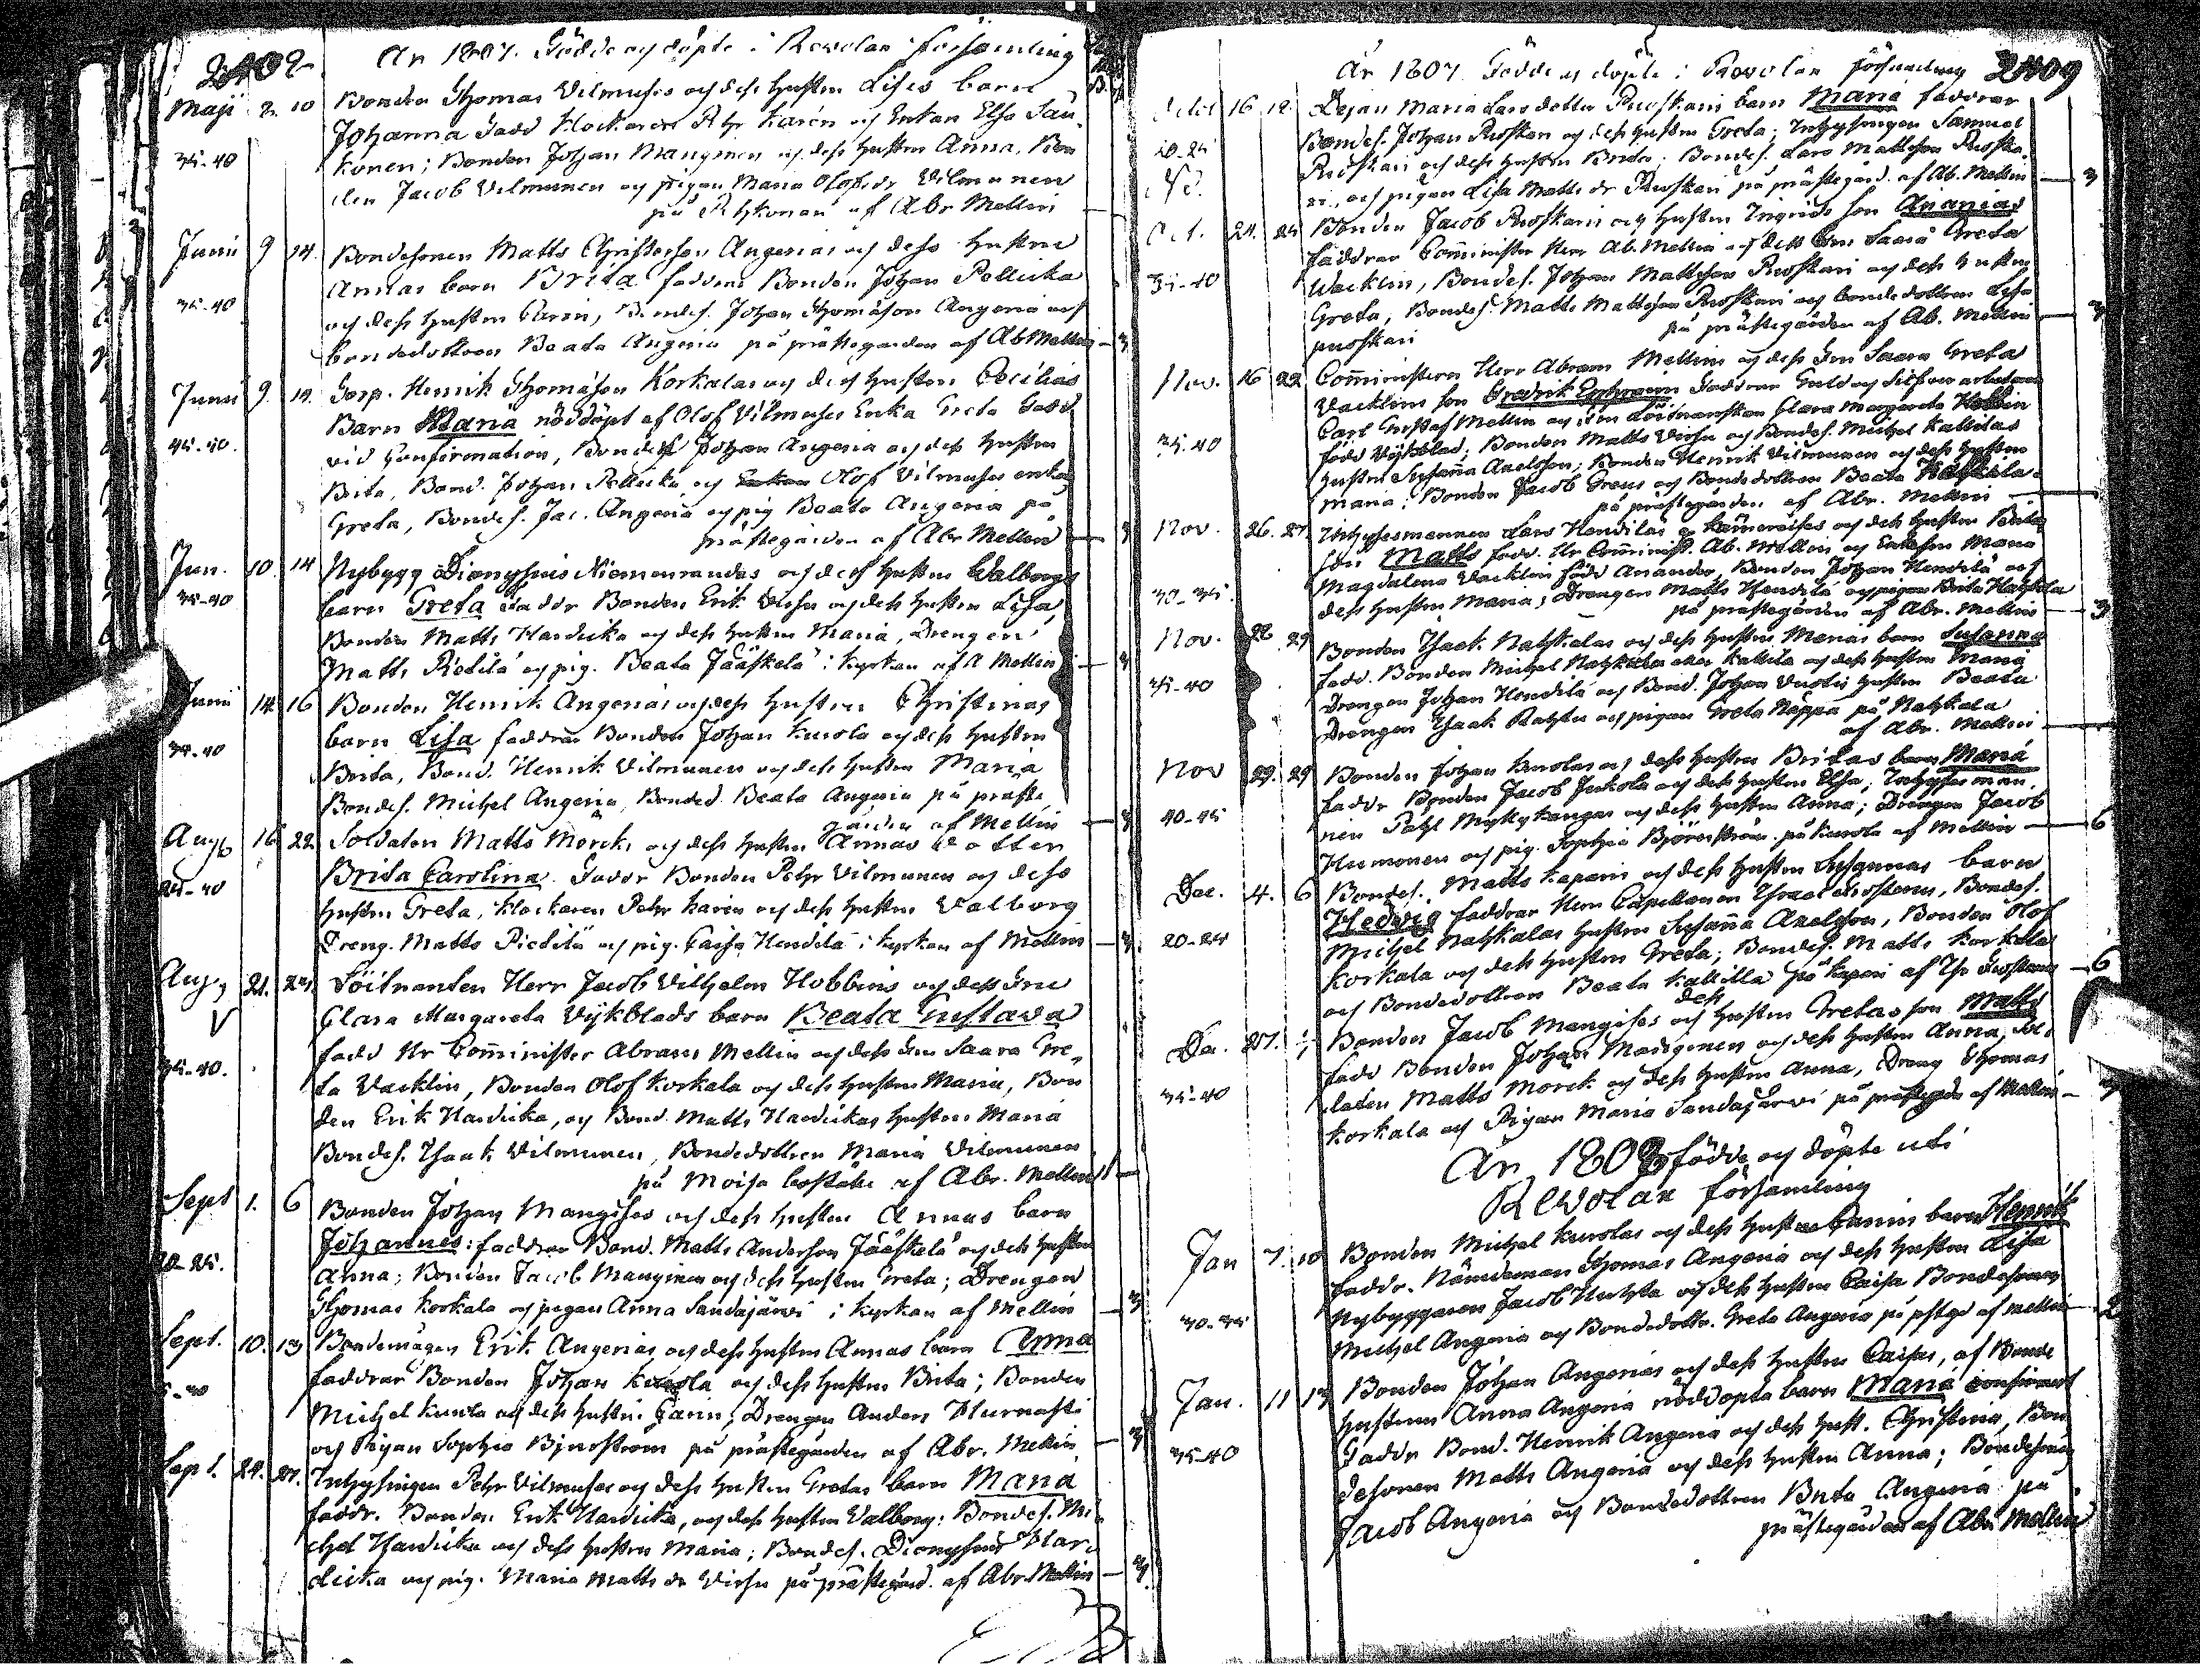 År 1807. Födde och döpte i Revolax församling
Maji 2. 10 Bonden Thomas Vilmuses och dess hustru Lises barn
Johanna Fadd Klockaren Pehr Karén och Enkan Elsa Sau
35-40 konen; Bonden Johan Manginen och dess hustru Anna, Bon
den Jacob Vilmunen och pigan Maria Olofsdr Vilmunen
på af Abr Mellin
Junii 9 14. Bondesonen Matts Christerson Angerias och dess hustru
Annas barn Brita faddrar Bonden Johan Pellicka
35-40 och dess hustru Carin, Bondes. Johan Thomasson Angeria och
bondedottren Beata Angeria på prästegården af Ab Mellin 3
Junii 9. 14. Corp. Henrik Thomasson Korkalas och dess hustru Cecilias
Barn Maria nöddöpt af Olof Vilmuses Enka Greta Fadd
45-50. vid Confirmation, Bondes Johan Angeria och dess hustru
Brita, Bond. Johan Pellicka och Olof Vilmuses enka
Greta, Bondes. Jac. Angeria och pig Beata Angeria på
prästegården af Abr Mellin 3
Jun. 10. 14 Nybygg Dionysius Niemenrandas och dess hustru Walborgs
35-40 barn Greta Faddr Bonden Erik Virsu och dess hustru Lisa,
Bonden Matts Harducka och dess hustru Maria, Drengen
Matts Pietilä och pig. Beata Jääskelä i kyrkan af A Mellin 3
Junii 14 16 Bonden Henrik Angerias och dess hustru Christinas
barn Lisa faddrar Bonden Johan Kurola och dess hustru
35-40 Brita, Bond. Henrik Vilmunen och dess hustru Maria
Bondes. Michel Angeria, Bonded. Beata Angeria på präste
gården af Mellin 3
Aug 16 22. Soldaten Matts Morcks och dess hustru Annas dotter
Brita Carolina. Faddr Bonden Pehr Vilmunen och dess
40 hustru Greta, klockaren Pehr Karén och dess hustru Valborg
Dreng. Matts Pietilä och pig. Caisa Hendilä i kyrkan af Mellin 3.
Aug, 21. 24. Löitnanten Herr Jacob Vilhelm Hobbins och dess fru
V Clara Margareta Vykblads barn Beata Gustava
fadd Hr Comminister Abram Mellin och dess fru Saara Gre-
35-40. ta Vacklin, Bonden Olof Korkala och dess hustru Maria, Bon
den Erik Harducka, och Bond. Matts Harduckas hustru Maria
Bondes. Isaak Vilmunen, Bondedottren Maria Vilmunen
på Moisa boställe af Abr. Mellin
Sept 1. 6 Bonden Johan Mangises och dess hustru Annas barn
Johannes: faddrar Bond. Matts Anderson Jääskelä och dess hustru
20-25. Anna; Bonden Jacob Manginen och dess hustru Greta; Drengen
Thomas Korkala och pigan Anna Sandajärvi i kyrkan af Mellin 3
Sept. 10. 13 Bondemågen Erik Angerias och dess hustru Annas barn Anna
faddrar Bonden Johan Kurola och dess hustru Brita; Bonden
Michel Kurola och dess hustru Carin; Drengen Anders
och Pigan Sophia Björnström på prästegården af Abr. Mellin 3
Sept. 24. 27. Inhysingen Pehr Vilmuses och dess hustru Gretas barn Maria
faddr. Bonden Erik Harducka, och dess hustru Valborg; Bondes. Mi
chel Harducka och dess hustru Maria; Bondes. Dionysius Har
ducka och pig. Maria Matts dr Virsu på prästegård. af Abr. Mellin 3
År 1807 Födde och döpte i Revolax församling
Octob 16 18. Pigan Maria Larsdotter Ruoskaris barn Maria faddrar
Bondes. Johan Ruoskari och dess hustru Greta; Inhysingen Samuel
20-25 Ruoskari och dess hustru Brita; Bondes. Lars Mattsson Ruoska
ri, och pigan Lisa Matts dr Ruoskari på prästegård. af Ab. Mellin 3
Oct. 21. 25 Bonden Jacob Ruoskaris och hustru Ingrids son Ananias
faddrar Comminister Herr Ab. Mellin och dess fru Saara Greta
35-40 Wacklin, Bondes. Johan Mattsson Ruoskari och dess hustru
Greta, Bondes. Matts Mattsson Ruoskari och bondedottren Lisa
Ruoskari på prästegården af Ab. Mellin 3
Nov. 16 22 Comministern Herr Abram Mellins och dess fru Saara Greta
Vacklins son Fredrik Ephraim Faddrar Guld och Silfver arbetaren
Carl Gustaf Mellin och fru Löitnanskan Clara Margareta Hobbin
35.40 född Vykblad; Bonden Matts Virsu och Bondes. Michel Kallilas
hustru Susanna Axelsson; Bonden Henrik Vilmunen och dess hustru
Maria; Bonden Jacob Greus och Bondedottren Beata
på prästegården af Abr. Mellin
Nov. 26. 27. Inhysesmannen Lars Hendiläs och dess hustru Brita
son Matts fadd. Hr Comminist. Ab. Mellin och Enkefru Maria
Magdalena Vacklin född Anander, Bonden Johan Hendilä och
30-35. dess hustru Maria; Drengen Matts Hendilä och pigan Brita
på prästegården af Abr. Mellin 3
Nov. 28 29 Bonden Isaak Natzkalas och dess hustru Marias barn Susanna
fadd. Bonden Michel eller Kallila och dess hustru Maria
35-40 Drengen Johan Hendilä och Bond. Johan hustru Beata
Drengen Isaak och pigan Greta Näppä på Natzkala
af Abr. Mellin
Nov 29. 29 Bonden Johan Kurolas och dess hustru Britas barn Maria
faddr Bonden Jacob Jukola och dess hustru Elsa; Inhysesman
40-45 nen Påhl Mykykangas och dess hustru Anna; Drengen Jacob
Humonen och pig. Sophia Björnström på Kurola af Mellin 6
Dec. 4. 6 Bondes. Matts Kaparis och dess hustru Susannas barn
Hedvig faddrar Herr Capellanen Israel, Bondes.
20-25 Michel Natzkalas hustru Susanna Axelsson, Bonden Olof
Korkala och dess hustru Greta; Bondes. Matts Korkala
och Bondedottren Beata Kallilla på Kapari af 6
Dec. 27. Bonden Jacob Mangises och dess hustru Gretas son Matts
fadd Bonden Johan Manginen och dess hustru Anna, Sol-
35-40 daten Matts Morck och dess hustru Anna, Dreng Thomas
Korkala och Pigan Maria Sandajärvi på prästegrd. af Mellin
År 1808 födde och döpte uti
Revolax församling
Jan 7. 10 Bonden Michel Kurolas och dess hustru Carins barn Henrik
faddr. Nämdeman Thomas Angeria och dess hustru Lisa
30-35 Nybyggaren Jacob och dess hustru Caisa Bondesonen
Michel Angeria och Bondedottr. Greta Angeria på pstgd af Mellin 2
Jan. 11 17 Bonden Johan Angerias och dess hustru Caisas, af Bonde
hustrun Anna Angeria nöddöpta barn Maria confirmert
35-40 Faddr Bond. Henrik Angeria och dess hust. Christina, Bon
desonen Matts Angeria och dess hustru Anna; Bondesonen
Jacob Angeria och Bondedottren Brita Angeria på
prästegården af Abr Mellin